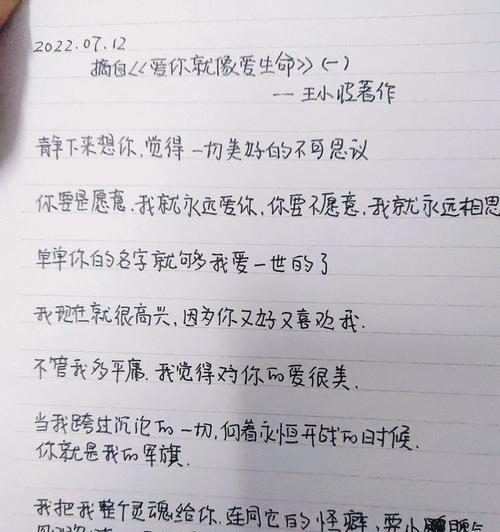 2022.07.12
摘自《爱你就像爱生命》(一)
— 王小波著作
静下来想你,觉得一切美好的不可思议
你要是愿意,我就永远爱你,你要不愿意,我就永远相思
单单你的名字就够我爱一世的了
我现在就很高兴,因为你又好又喜欢我.
不管我多平庸,我觉得对你的爱很美.
当我跨过沉沦的一切,向着永恒开战的时候.
你就是我的军旗.
我把我整个灵魂给你,连同它的怪癖,耍小脾气